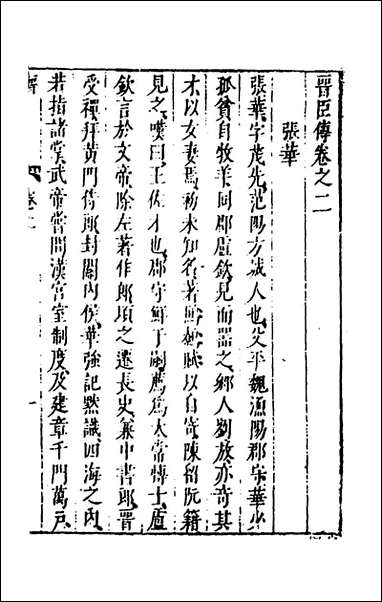 晉臣傳卷之二
張華
張華字茂先范陽方城人也父平魏漁陽郡守華少
孤貧自牧羊同郡盧欽見而器之鄉人劉放亦奇其
才以女妻焉初未知名著鷦鷯賦以自寄陳留阮籍
見之嘆曰王佐才也郡守鮮于嗣薦爲太常博士盧
欽言於文帝除左著作郎頃之遷長史兼中書郎晉
受禪拜黃門侍郎封關內侯華強記默識四海之內
若指諸掌武帝嘗問漢宮室制度及建章千門萬戶
卷二
一